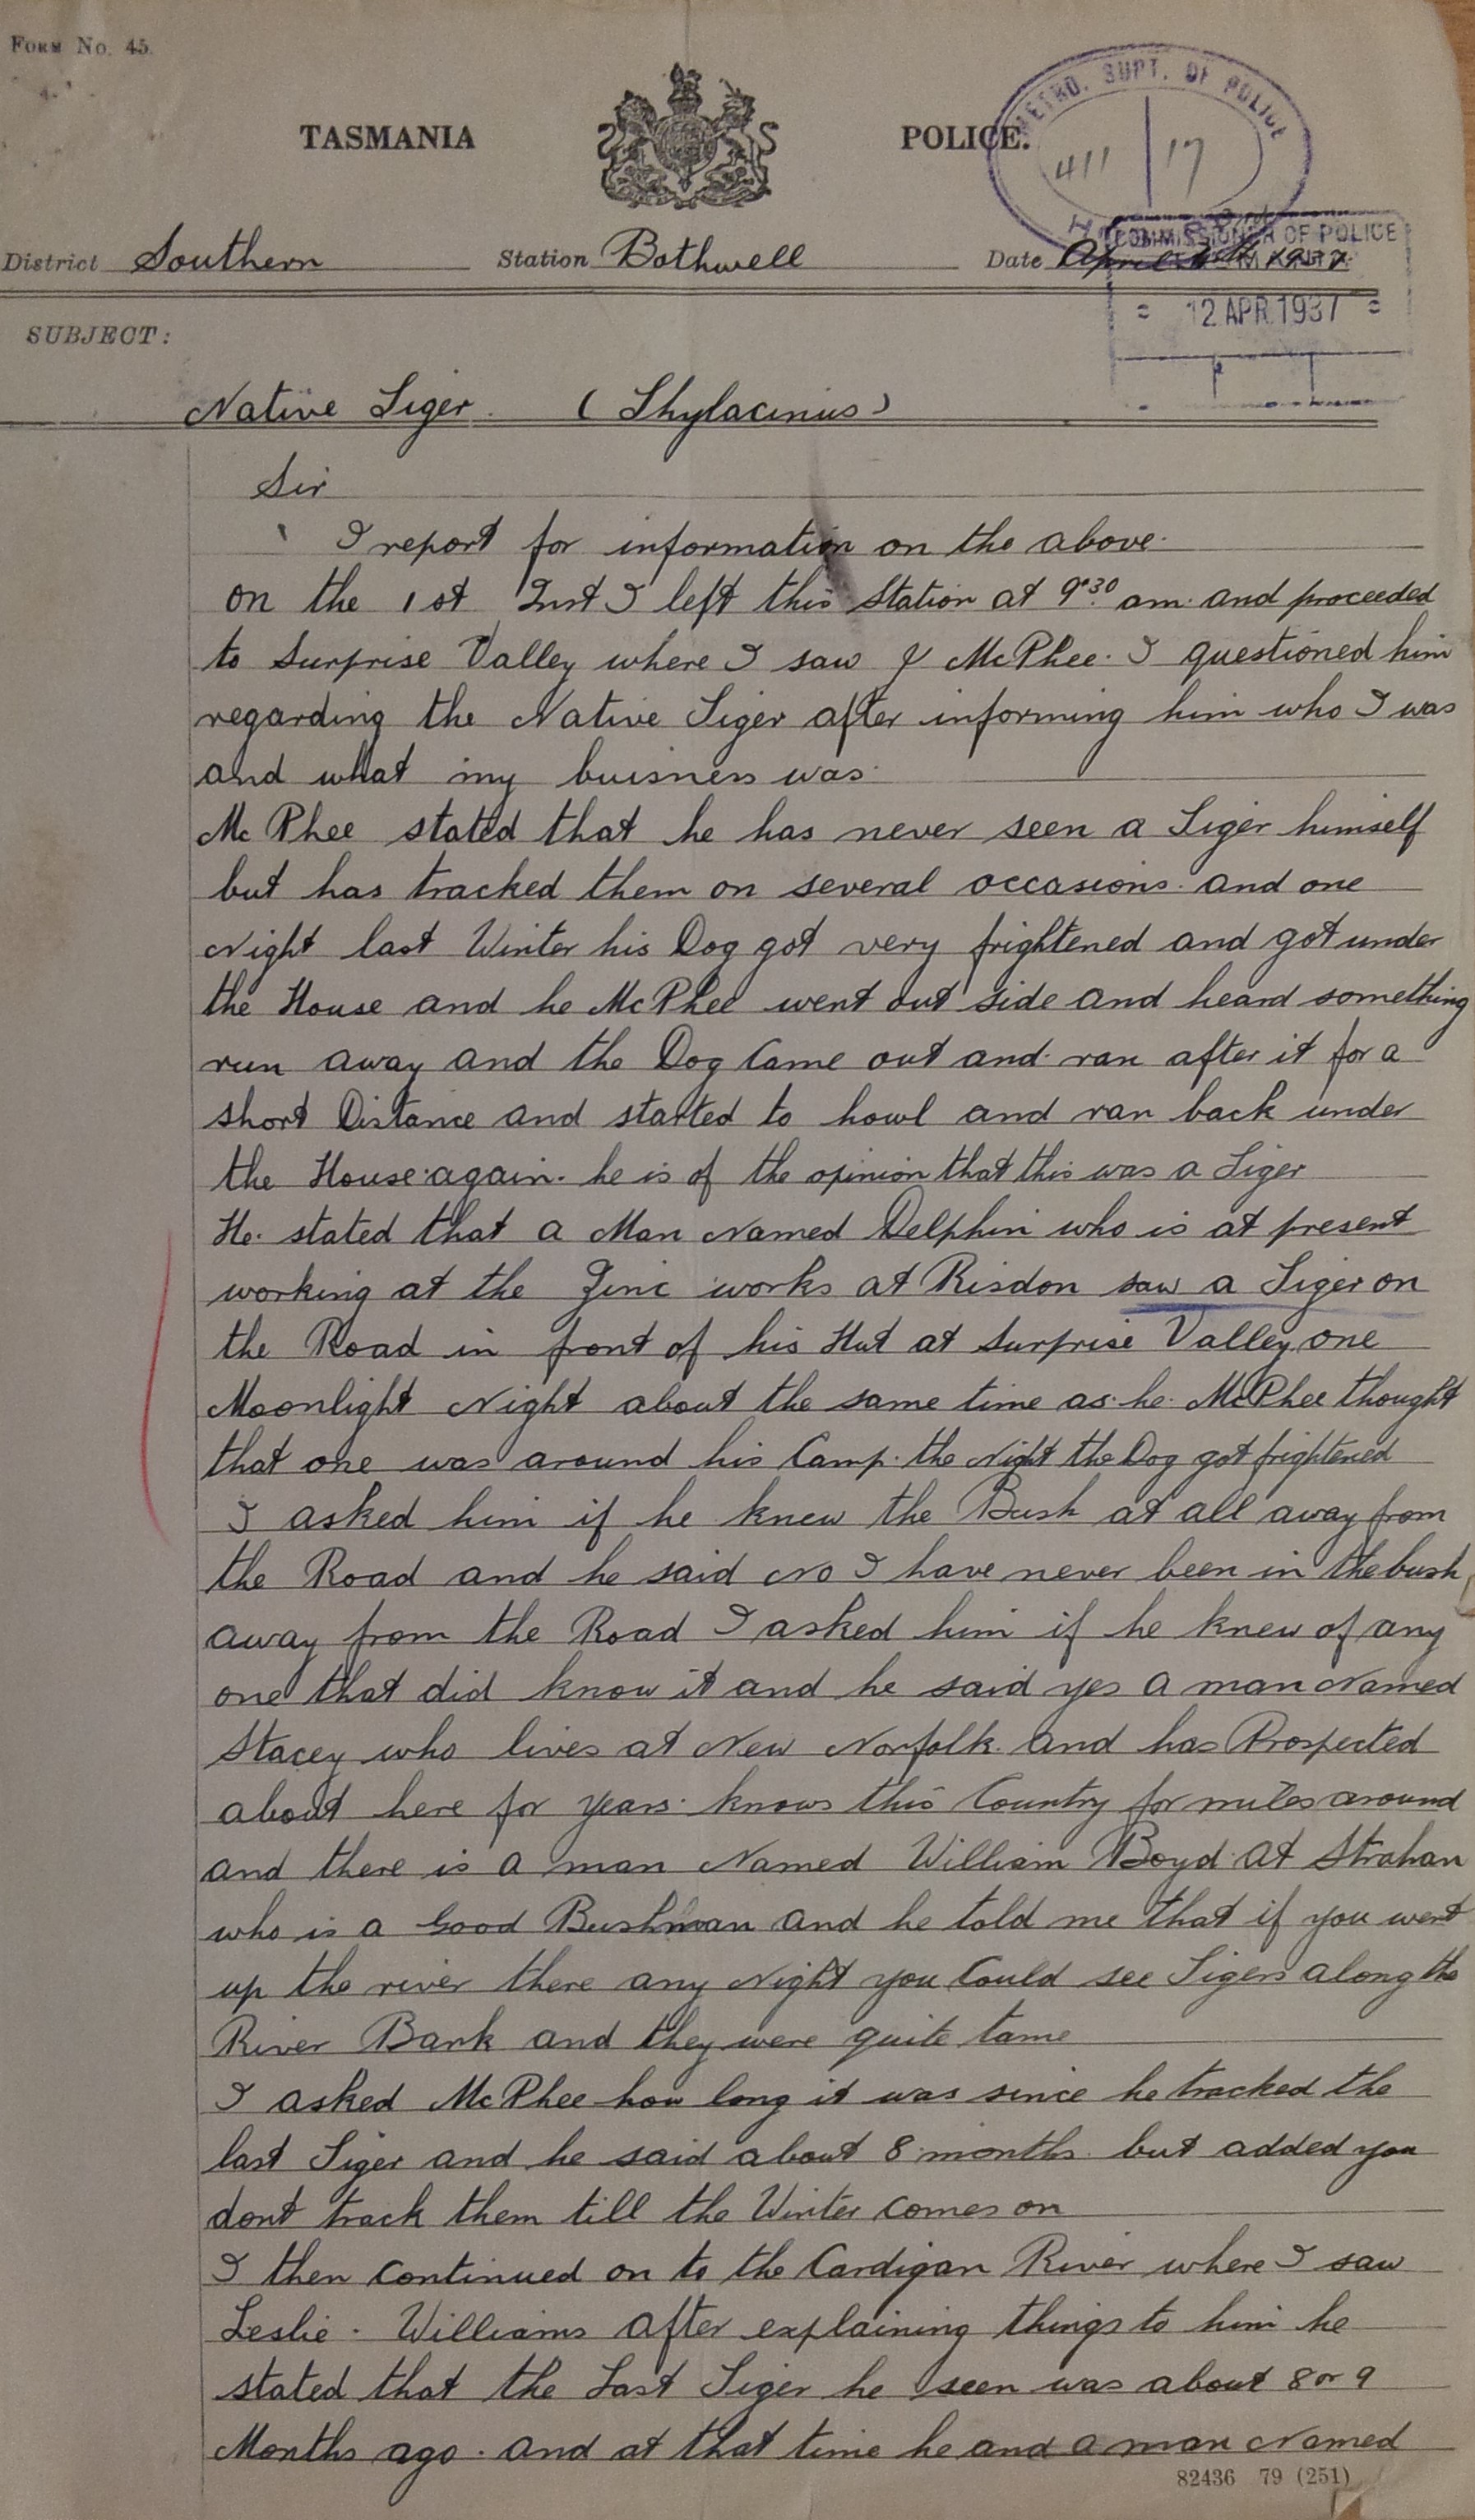 FORM No. 45.
TASMANIA POLICE.
METRO. SUPT. OF POLICE
411 17
District Southern Station Bothwell Date April 1937
COMMISSIONER OF POLICE
TASMANIA
12 APR. 1937
SUBJECT:
Native Tiger. (Thylacinius)
Sir
I report for information on the above.
on the 1st Inst I left this Station at 9.30 am. and proceeded
to Surprise Valley where I saw J McPhee. I questioned him
regarding the Native Tiger after informing him who I was
and what my buisness was.
McPhee stated that he has never seen a Tiger himself
but has tracked them on several occasions. and one
Night last Winter his Dog got very frightened and got under
the House and he McPhee went out side and heard something
run away and the Dog Came out and ran after it for a
short Distance and started to howl and ran back under
the House again. he is of the opinion that this was a Tiger
He. stated that a Man Named Delphin who is at present
working at the Zinc works at Risdon saw a Tiger on
the Road in front of his Hut at Surprise Valley one
Moonlight Night about the same time as he McPhee thought
that one was around his Camp. the Night the Dog got frightened
I asked him if he knew the Bush at all away from
the Road and he said No I have never been in the bush
away from the Road I asked him if he knew of any
one that did know it and he said yes a man Named
Stacey who lives at New Norfolk. and has Prospected
about here for years. knows this Country for miles around
and there is a man Named William Boyd at Strahan
who is a Good Bushman and he told me that if you went
up the river there any Night you Could see Tigers along the
River Bank and they were quite tame
I asked McPhee how long it was since he tracked the
last Tiger and he said about 8 months. but added you
dont track them till the Winter comes on
I then continued on to the Cardigan River where I saw
Leslie. Williams after explaining things to him he
stated that the Last Tiger he seen was about 8 or 9
Months ago. and at that time he and a man Named
82436 79 (251)